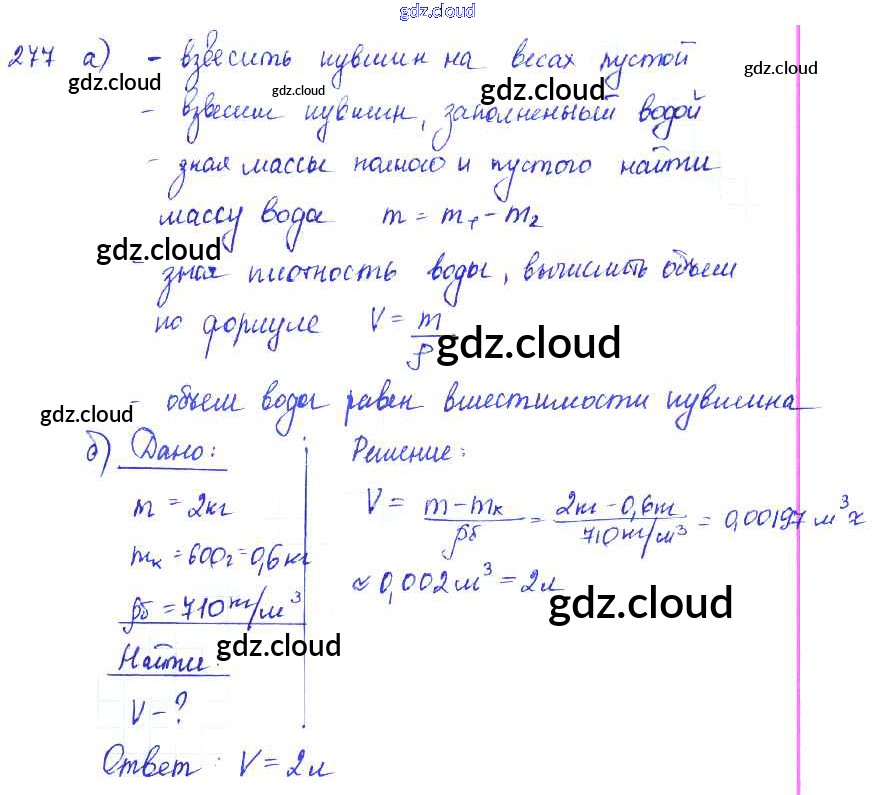 gdz.cloud
277 а) - взвесить кувшин на весах пустой
gdz.cloud gdz.cloud gdz.cloud gdz.cloud
- взвесим кувшин, заполненный водой
- зная массы полного и пустого найти
массу воды m = m₁ - m₂
gdz.cloud
- зная плотность воды, вычислить объем
по формуле V = m/ρ
gdz.cloud
- объем воды равен вместимости кувшина
gdz.cloud
б) Дано: Решение:
m = 2кг V = (m - mк)/ρб = (2кг - 0,6кг)/(710кг/м³) = 0,00197м³ ≈
mк = 600г = 0,6кг ≈ 0,002м³ = 2л
ρб = 710кг/м³ gdz.cloud
Найти: gdz.cloud
V - ?
Ответ: V = 2л